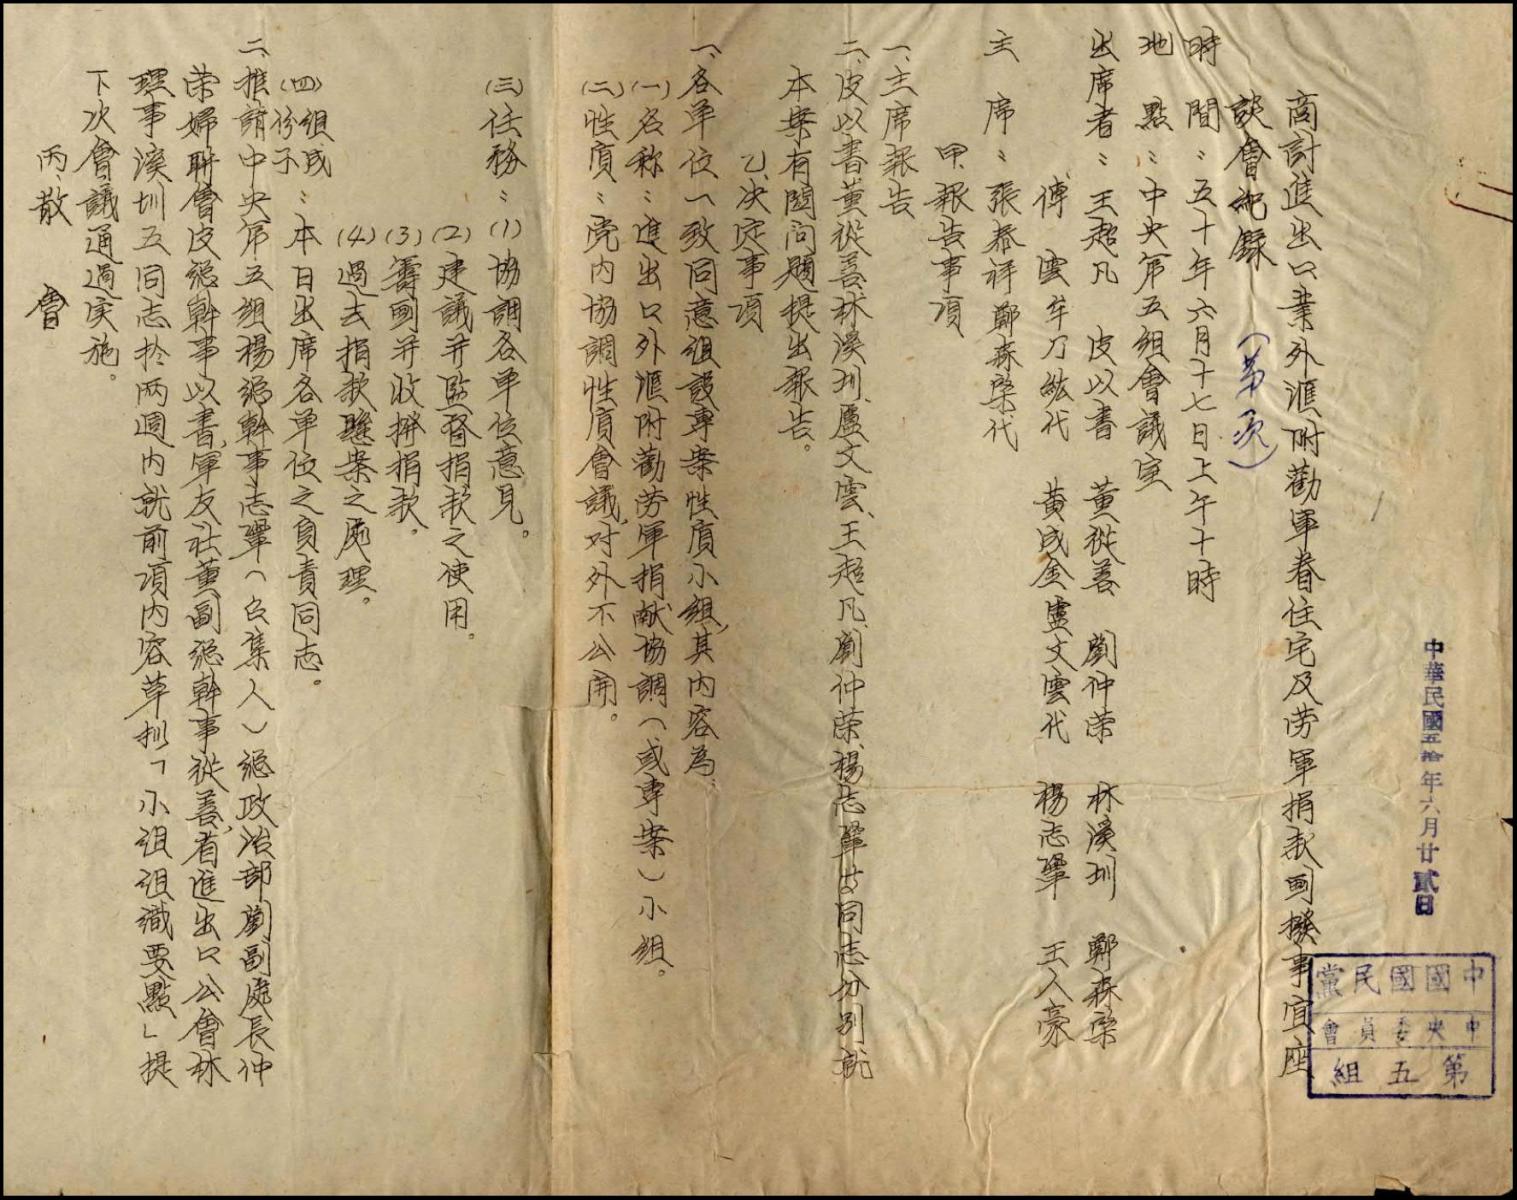 中華民國五拾年六月廿貳日
中國國民黨
中央委員會
第五組
商討進出口業外滙附勸軍眷住宅及劳軍捐款劃撥事宜座
談會紀錄(第一次)
時間:五十年六月十七日上午十時
地點:中央第五組會議室
出席者:王超凡 皮以書 黃從善 劉仲荣 林溪圳 鄭森棨
傅雲 牟乃紘代 黃成金 盧文雲代 楊志鞏 王人豪
主席:張泰祥 鄭森棨代
甲、報告事項
一、主席報告
二、皮以書黃從善林溪圳、盧文雲、王超凡、劉仲荣、楊志鞏等同志分別就
本案有關问題提出報告。
乙、决定事項
一、各单位一致同意組設專案性质小组,其內容為:
(一)名称:進出口外滙附勸劳軍捐献協調(或專案)小組。
(二)性质:党内協調性质會議,对外不公開。
(三)任務:(1)協調各单位意見。
(2)建議并監督捐款之使用。
(3)籌劃并收撥捐款。
(4)過去捐款懸案之處理。
(四)組成份子:本日出席各单位之負責同志。
二、推請中央第五組楊總幹事志鞏(召集人)總政治部劉副處長仲
荣婦聯會皮總幹事以書,軍友社黃副總幹事從善,省進出口公會林
理事溪圳五同志於两週内就前項内容草拟「小组组織要點」提
下次會議通過実施。
丙、散會